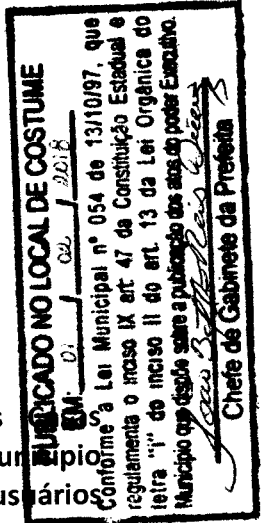 PUBLICADO NO LOCAL DE COSTUME
EM: 01 / / 2018
Conforme a Lei Municipal nº 054 de 13/10/97, que
regulamenta o inciso IX art 47 da Constituição Estadual e
letra "i" do inciso II do art. 13 da Lei Orgânica do
Município que dispõe sobre a publicação dos atos do poder Executivo.
Chefe de Gabinete da Prefeita
s
usuários